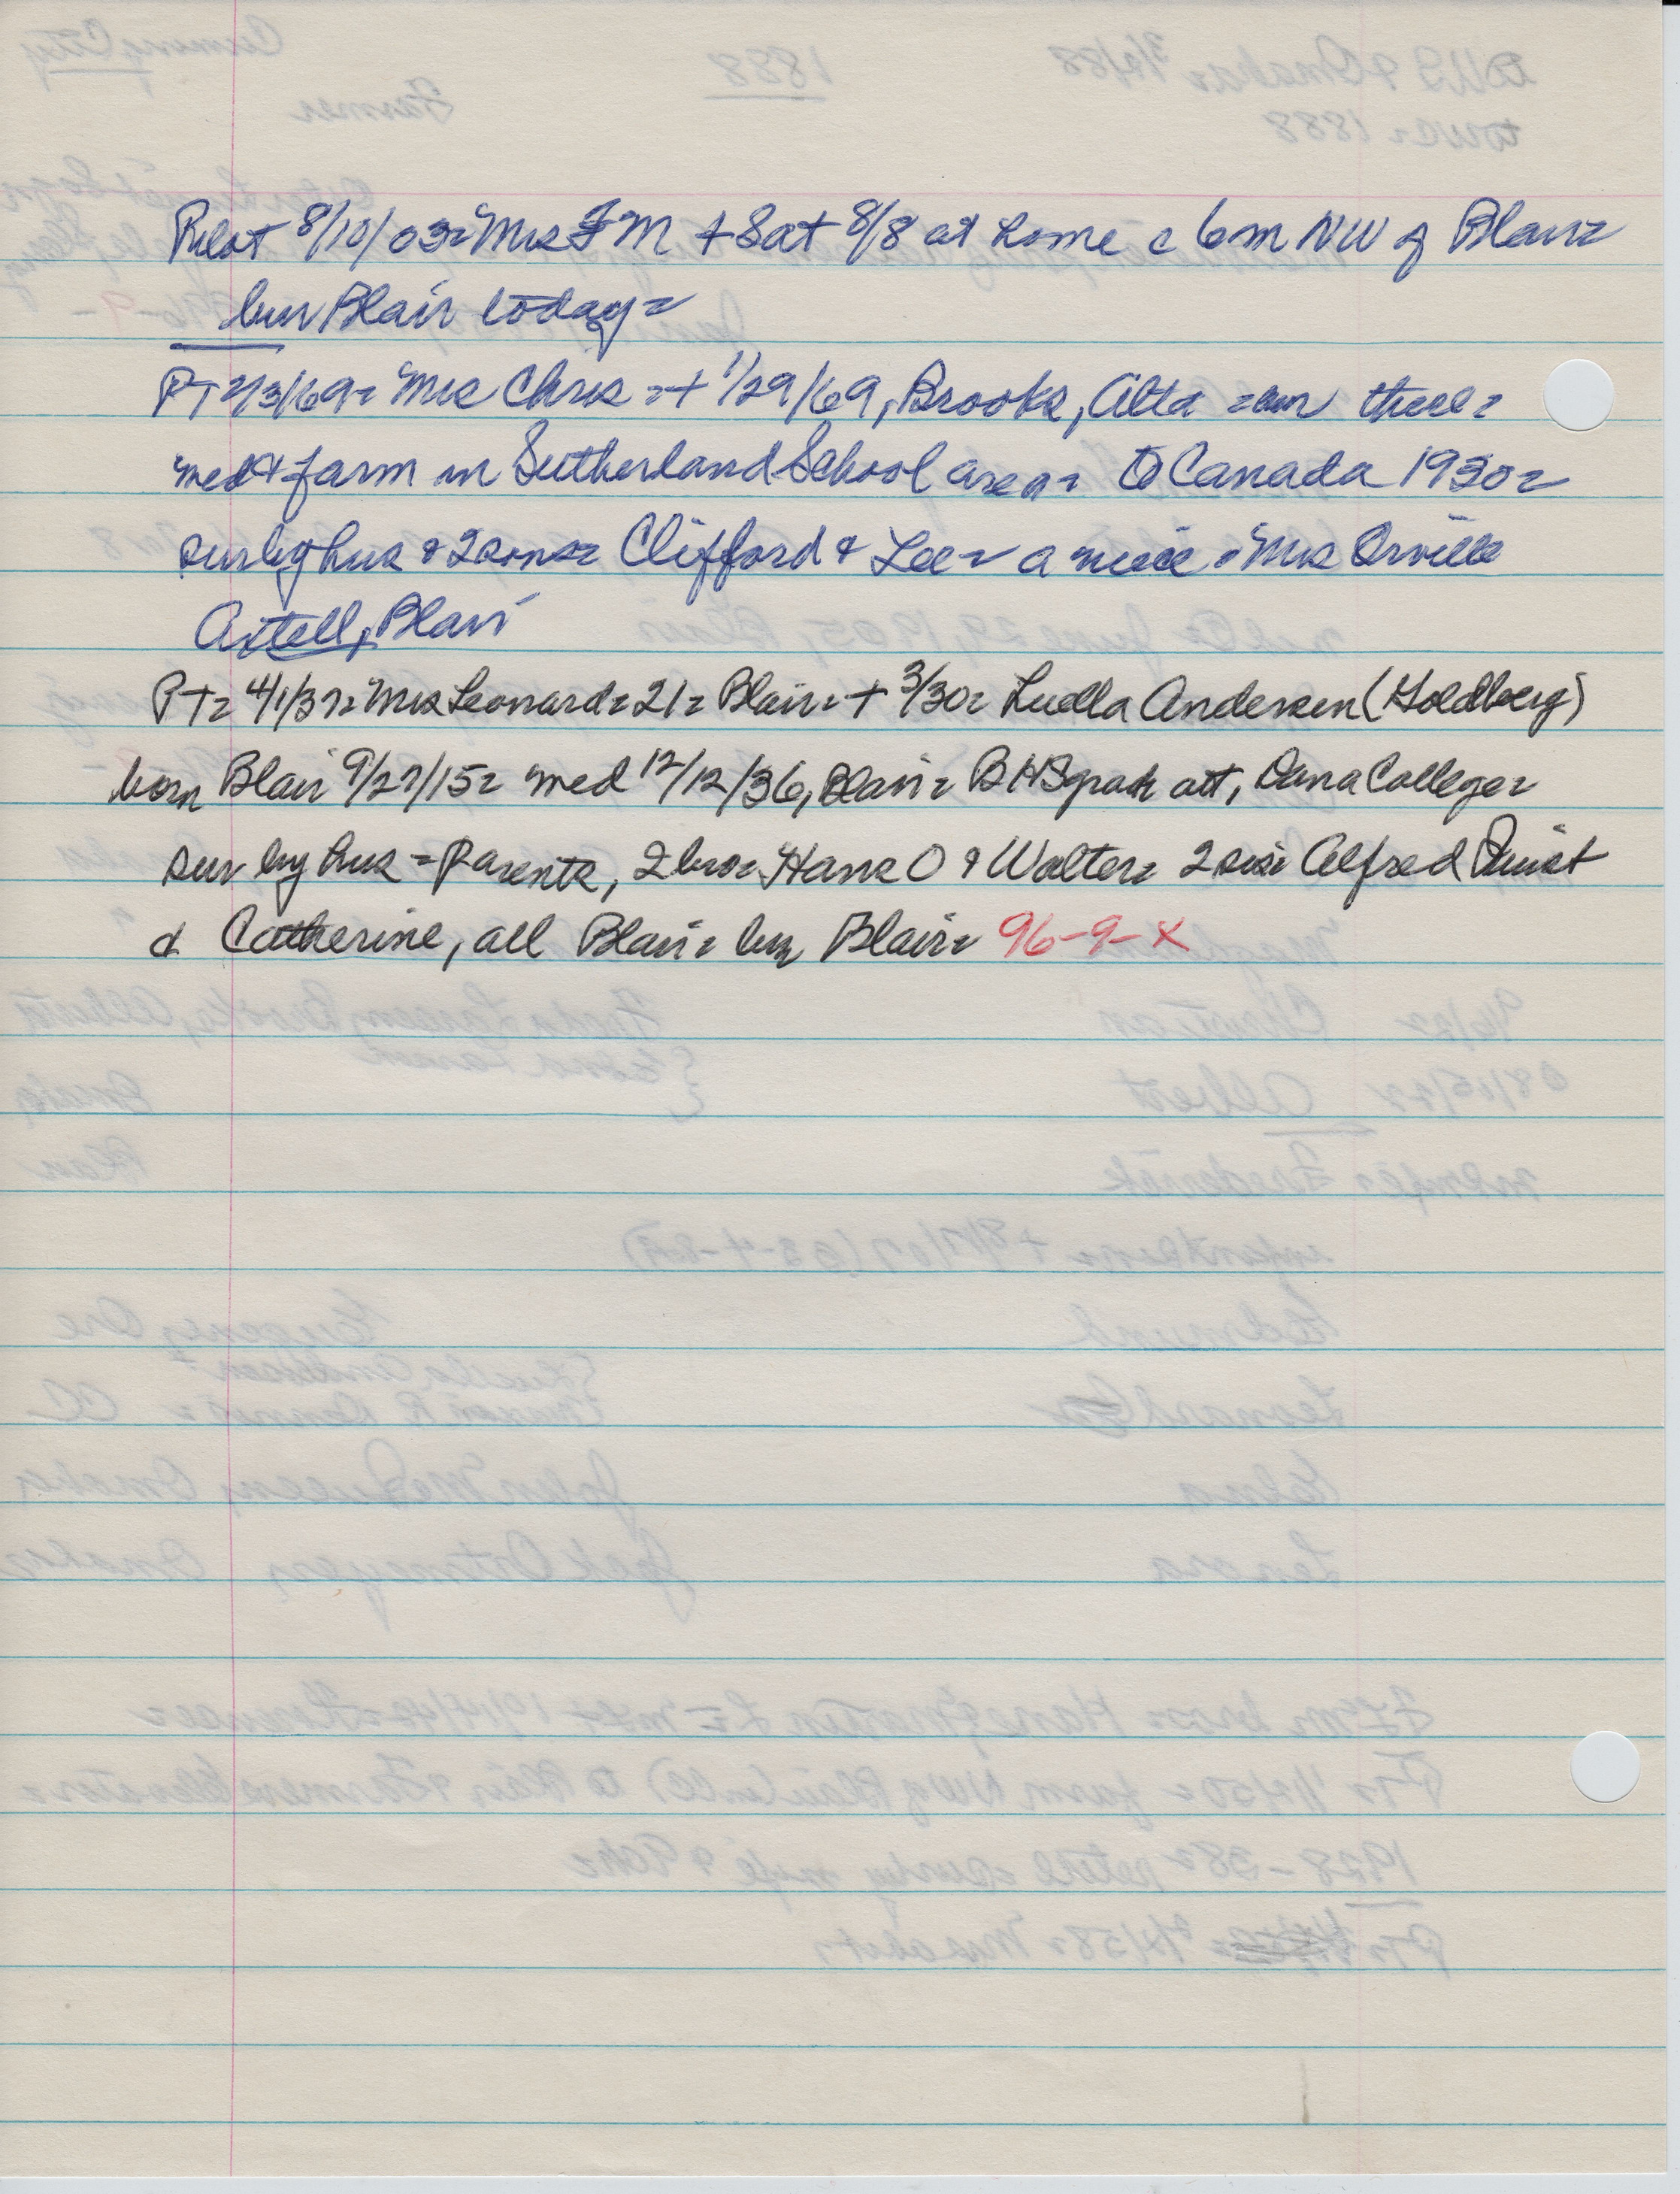 Pilot 8/10/03= Mrs F M + Sat 8/8 at home c 6m NW of Blair=
bur Blair today=
PT 2/3/69= Mrs Chris =+ 1/29/69, Brooks, Alta =bur there=
med & farm in Sutherland School area= to Canada 1930=
sur by hus & 2 sons= Clifford & Lee= a niece = Mrs Orville
Axtell, Blair
PT= 4/1/37= Mrs Leonard=21= Blair=+ 3/30= Luella Andersen (Goldberg)
born Blair 9/27/15= med 12/12/36, Blair= BHS grad att, Dana College=
sur by hus = Parents, 2 bro= Hans O & Walter= 2 sis= Alfred Quist
& Catherine, all Blair= bur Blair= 96-9-X